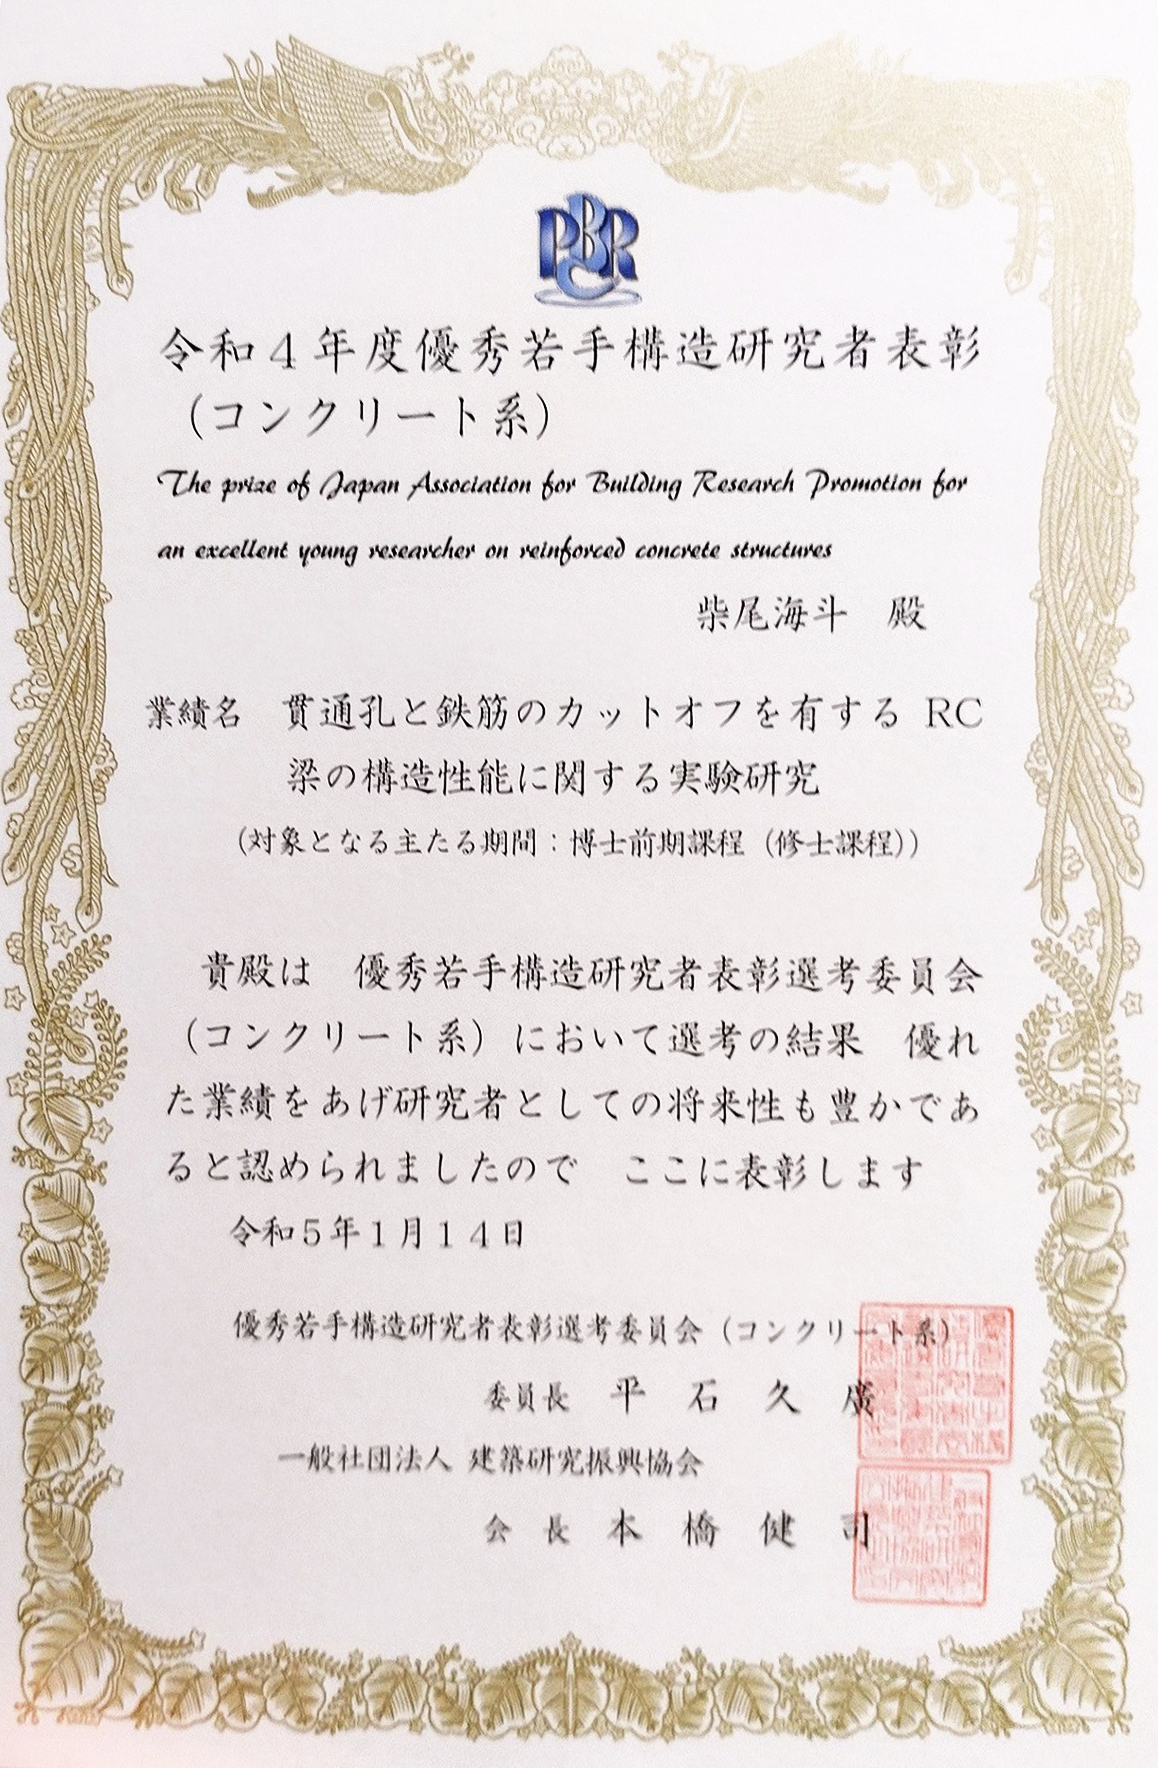 PBR
令和4年度優秀若手構造研究者表彰
（コンクリート系）
The prize of Japan Association for Building Research Promotion for
an excellent young researcher on reinforced concrete structures
柴尾海斗　殿
業績名　貫通孔と鉄筋のカットオフを有する RC
梁の構造性能に関する実験研究
（対象となる主たる期間：博士前期課程（修士課程））
貴殿は　優秀若手構造研究者表彰選考委員会
（コンクリート系）において選考の結果　優れ
た業績をあげ研究者としての将来性も豊かであ
ると認められましたので　ここに表彰します
令和5年1月14日
優秀若手構造研究者表彰選考委員会（コンクリート系）
委員長　平　石　久　廣
一般社団法人 建築研究振興協会
会　長　本　橋　健　司